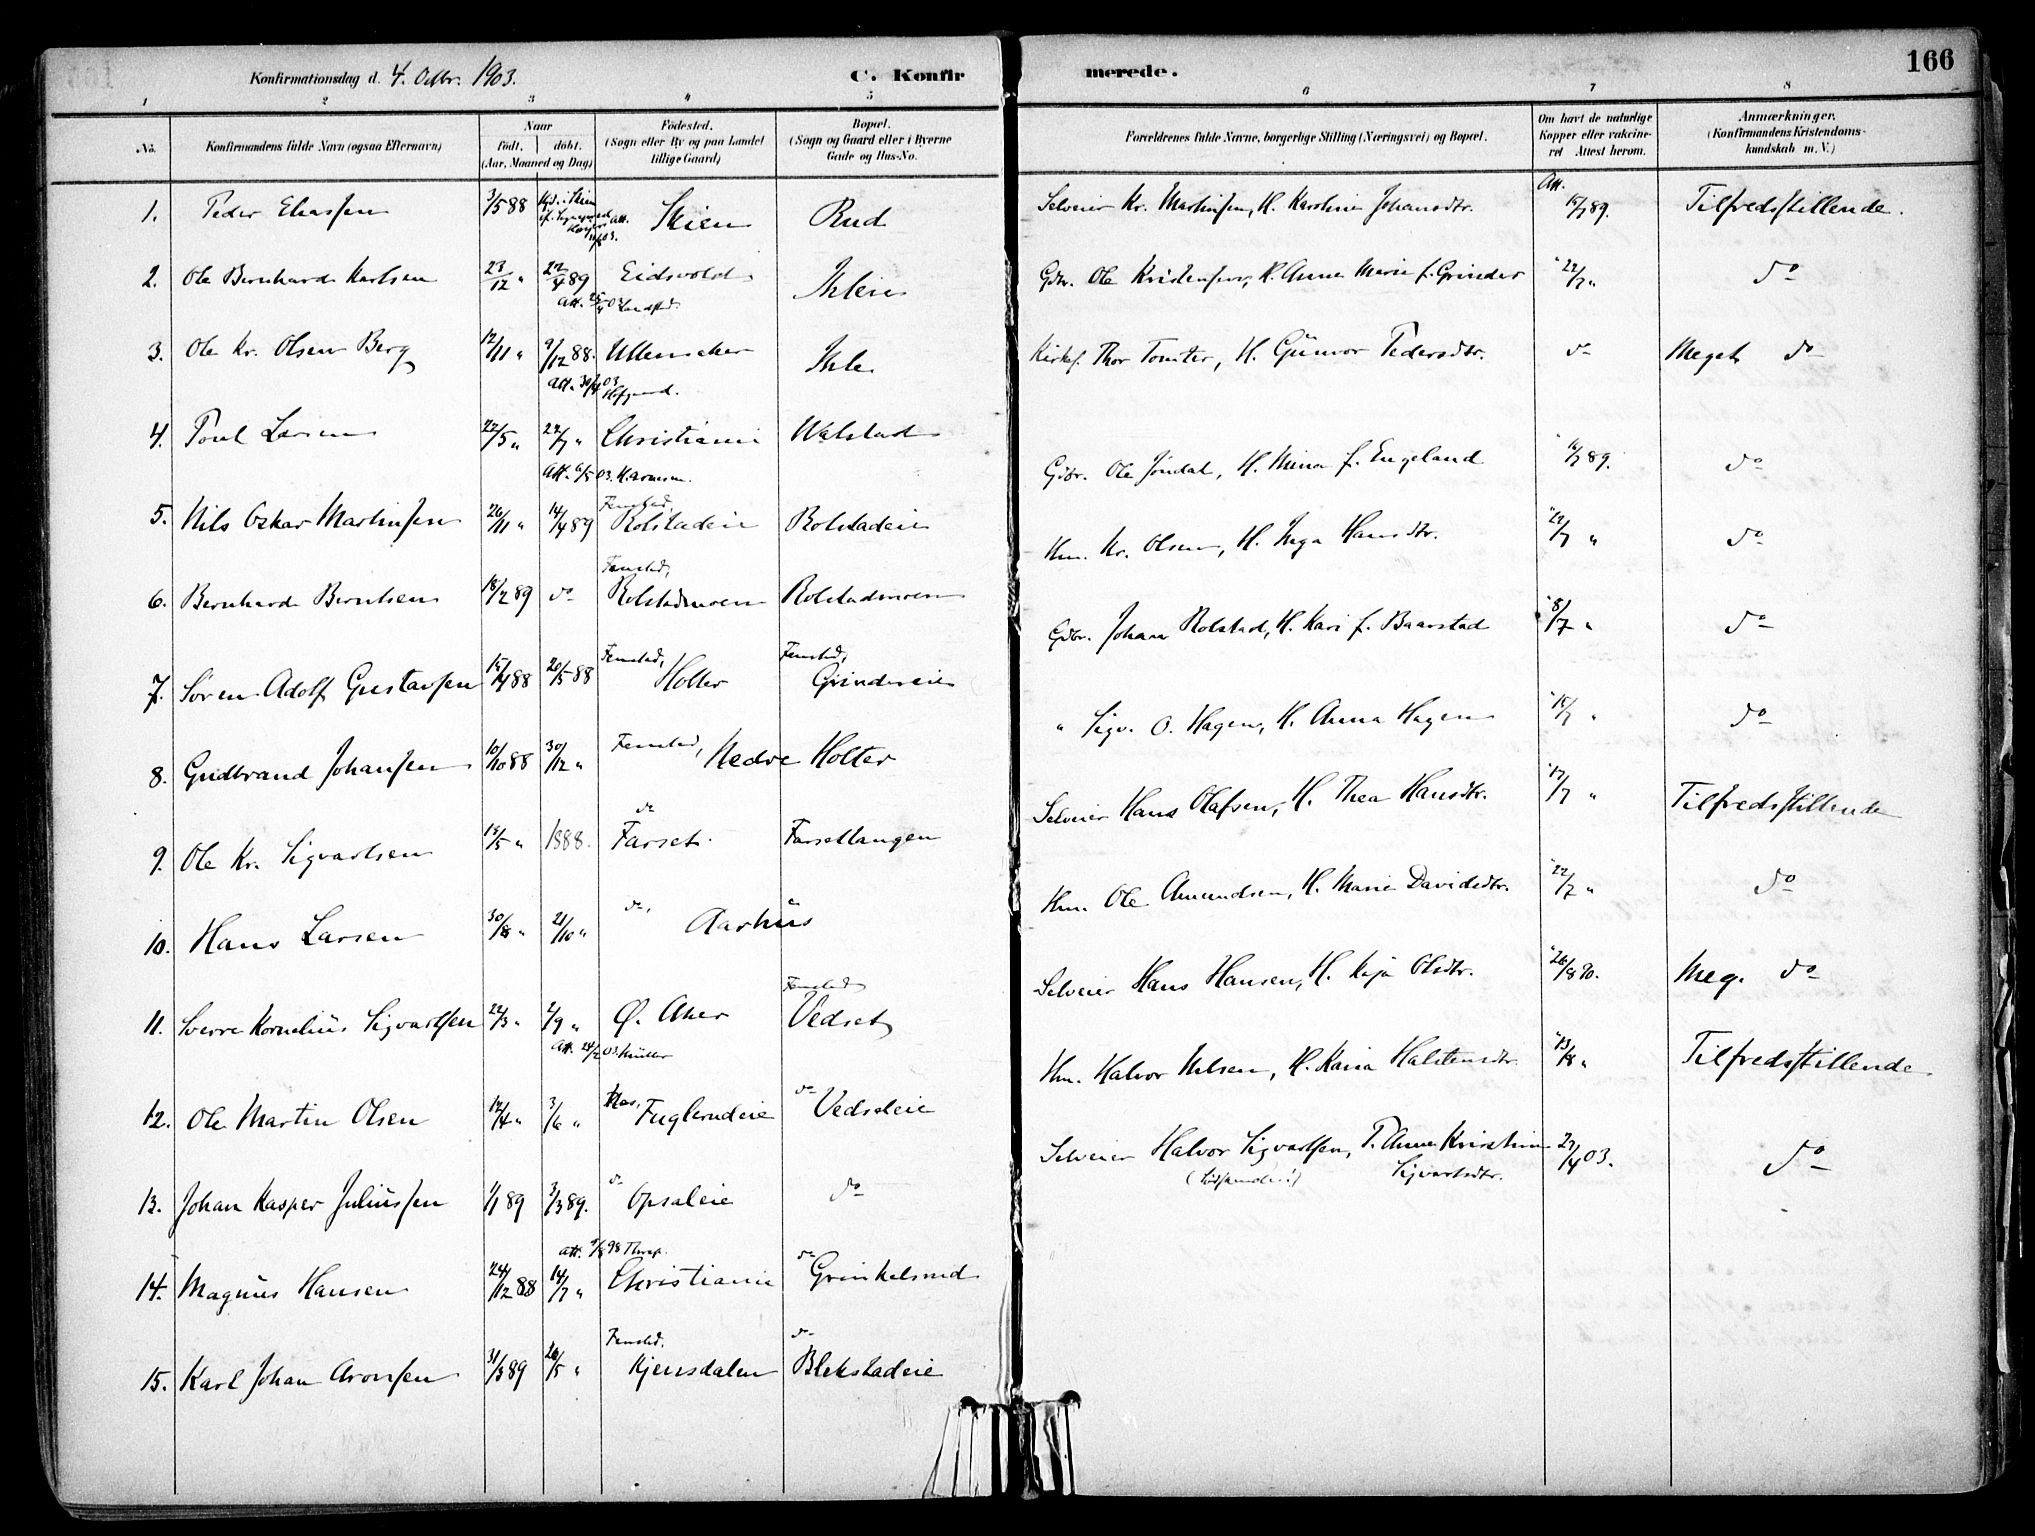 166
Konfirmationsdag d. 4. Octbr. 1903.
C. Konfirmerede.
1 2 3 4 5 6 7 8
No.
Konfirmandens fulde Navn (ogsaa Efternavn)
Naar
födt. döbt.
(Aar, Maaned og Dag)
Födested.
(Sogn eller By og paa Landet
tillige Gaard)
Bopæl.
(Sogn og Gaard eller i Byerne
Gade og Hus-No.
Forældrenes fulde Navne, borgerlige Stilling (Næringsvei) og Bopæl.
Om havt de naturlige
Kopper eller vakcine-
ret Attest herom.
Anmærkninger.
(Konfirmandens Kristendoms-
kundskab m. V.)
1. Peder Eliassen 3/5 88 Skien Rud
2. Ole Bernhard Karlsen 23/12 " 22/4 89 Eidsvold Ihleie
Att. 25/4 03 Landstad.
3. Ole Kr. Olsen Berg 12/11 " 9/12 88. Ullensaker Ihle
Att. 30/4 03
4. Poul Larsen 22/5 " 22/7 " Christiania Walstad
Att. 6/5 03.
5. Nils Oskar Martinsen 26/11 " 14/4 89 Fenstad, Rolstadeie Rolstadeie
6. Bernhard Berntsen 18/2 89 do Fenstad, Rolstadmoen Rolstadmoen
7. Søren Adolf Gustavsen 15/4 88 20/5 88 Fenstad, Holter Fenstad, Grindereie
8. Gudbrand Johansen 10/10 88 30/12 " Fenstad, Nedre Holter
9. Ole Kr. Sigvartsen 15/5 " 1888. do Farset. Farsettangen
10. Hans Larsen 30/8 " 21/10 " do, Aarhus
11. Sverre Kornelius Sigvartsen 22/3 " 2/9 " Ø. Aker Fenstad Vedset
Att. 24/2 03. Müller
12. Ole Martin Olsen 12/4 " 3/6 " Fuglerudeie do Vedseteie
13. Johan Kasper Juliussen 1/1 89 3/3 89. do Opsaleie do
14. Magnus Hansen 24/12 88 14/7 " Christiania do Grinkelsrud
15. Karl Johan Aronsen 31/3 89 26/5 " Fenstad. Kjensdalen do Blekstadeie
Selveier Kr. Martinsen, H. Karoline Johansdtr. Att. 15/7 89. Tilfredsstillende.
Gdbr. Ole Kristensen, H. Anne Marie f. Grinder " 22/7 " do
Kirkes. Thor Tomter, H. Gunvor Pedersdtr. do Meget do
Gdbr. Ole Jøndal, H. Mina f. Engeland " 16/7 89. do
Hm. Kr. Olsen, H. Inga Hansdtr. " 22/7 " do
Gdbr. Johan Rolstad, H. Kari f. Baarstad " 8/7 " do
" Sigv. O. Hagen, H. Anna Hagen " 15/7 " do
Selveier Hans Olafsen, H. Thea Hansdtr. " 17/7 " Tilfredsstillende
Hm. Ole Amundsen, H. Marie Davidsdtr. " 22/7 " do
Selveier Hans Hansen, H. Kaja Olsdtr. " 26/8 90. Meg. do
Hm. Halvor Nilsen, H. Karia Halstensdtr. " 13/8 " Tilfredsstillende
Selveier Halvor Sigvartsen, P. Anne Kristine 27/4 03. do
Sigvartsdtr.